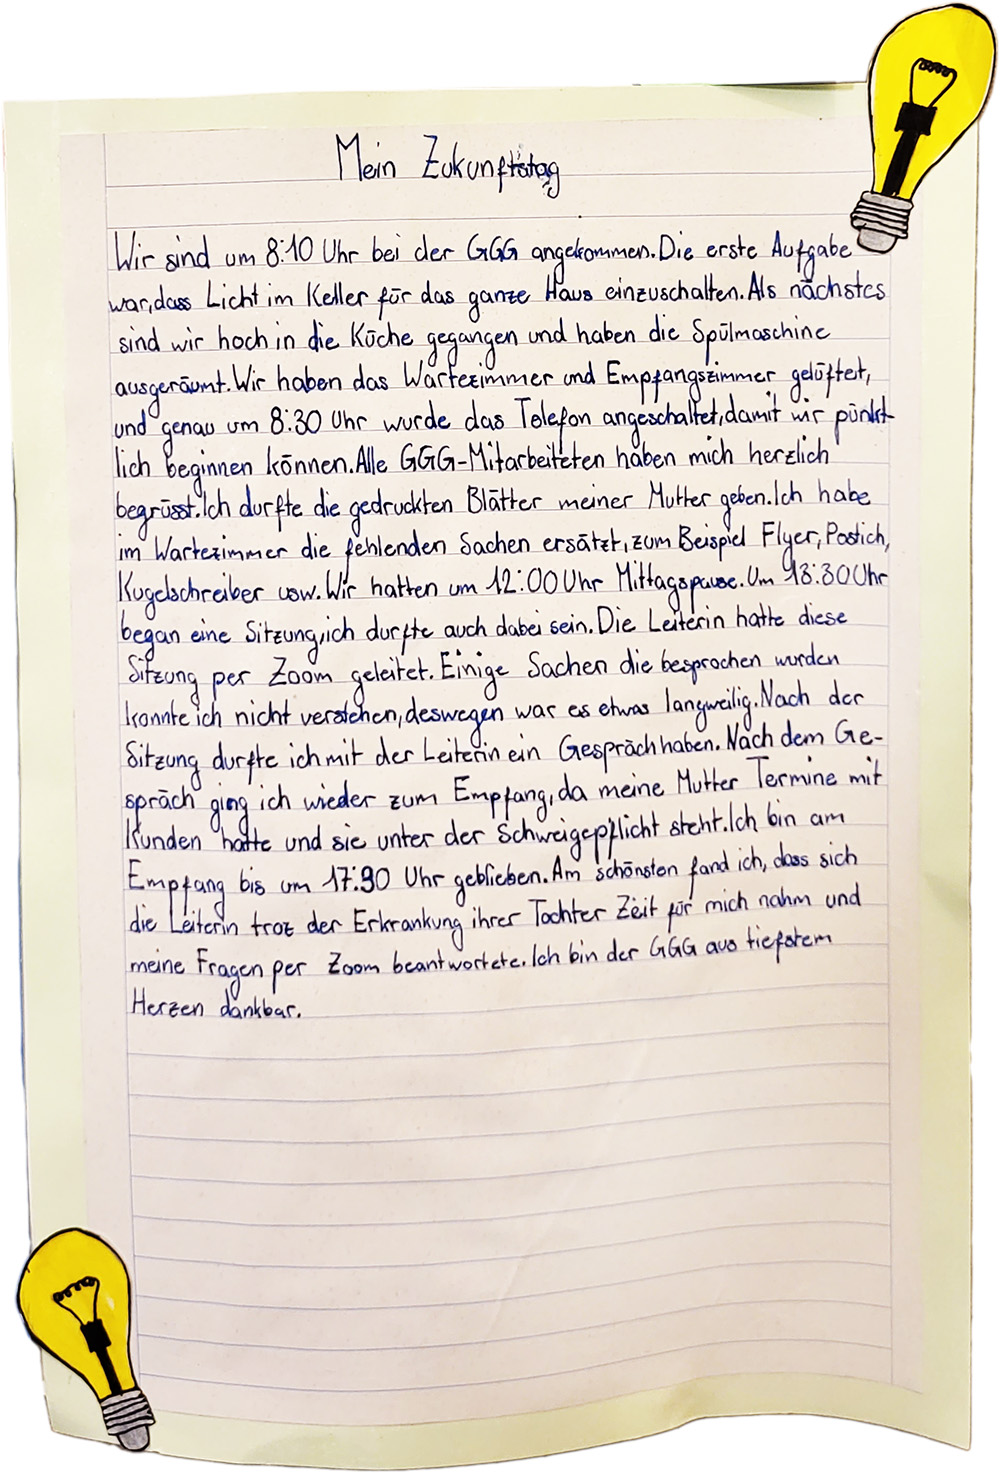 Mein Zukunftstag
Wir sind um 8:10 Uhr bei der GGG angekommen. Die erste Aufgabe
war, dass Licht im Keller für das ganze Haus einzuschalten. Als nächstes
sind wir hoch in die Küche gegangen und haben die Spülmaschine
ausgeräumt. Wir haben das Wartezimmer und Empfangszimmer gelüftet,
und genau um 8:30 Uhr wurde das Telefon angeschaltet, damit wir pünkt-
lich beginnen können. Alle GGG-Mitarbeiteten haben mich herzlich
begrüsst. Ich durfte die gedruckten Blätter meiner Mutter geben. Ich habe
im Wartezimmer die fehlenden Sachen ersätzt, zum Beispiel Flyer, Postich,
Kugelschreiber usw. Wir hatten um 12:00 Uhr Mittagspause. Um 13:30 Uhr
began eine Sitzung, ich durfte auch dabei sein. Die Leiterin hatte diese
Sitzung per Zoom geleitet. Einige Sachen die besprochen wurden
konnte ich nicht verstehen, deswegen war es etwas langweilig. Nach der
Sitzung durfte ich mit der Leiterin ein Gespräch haben. Nach dem Ge-
spräch ging ich wieder zum Empfang, da meine Mutter Termine mit
Kunden hatte und sie unter der Schweigepflicht steht. Ich bin am
Empfang bis um 17:30 Uhr geblieben. Am schönsten fand ich, dass sich
die Leiterin troz der Erkrankung ihrer Tochter Zeit für mich nahm und
meine Fragen per Zoom beantwortete. Ich bin der GGG aus tiefstem
Herzen dankbar.